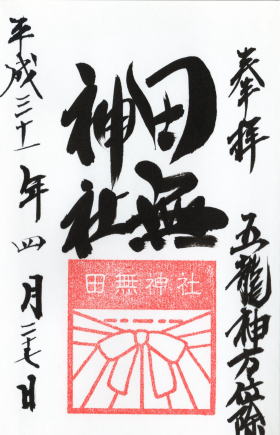 奉拝
五龍神方位除
田無
神社
田無神社
平成三十一年四月二十七日